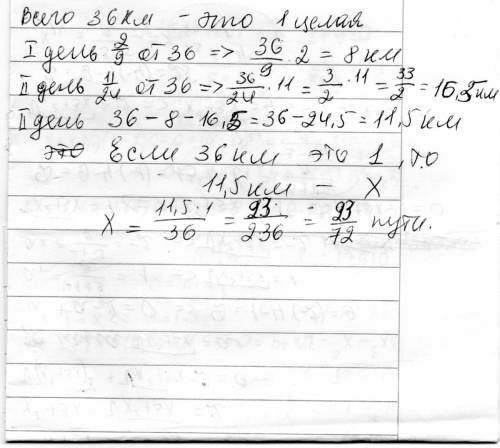 Всего 36 км - это 1 целая
I день 2/9 от 36 => 36/9 · 2 = 8 км
II день 11/24 от 36 => 36/24 · 11 = 3/2 · 11 = 33/2 = 16,5 км
II день 36 - 8 - 16,5 = 36 - 24,5 = 11,5 км
это Если 36 км это 1, то
11,5 км - X
X = 11,5 · 1/36 = 23/236 = 23/72 пути.